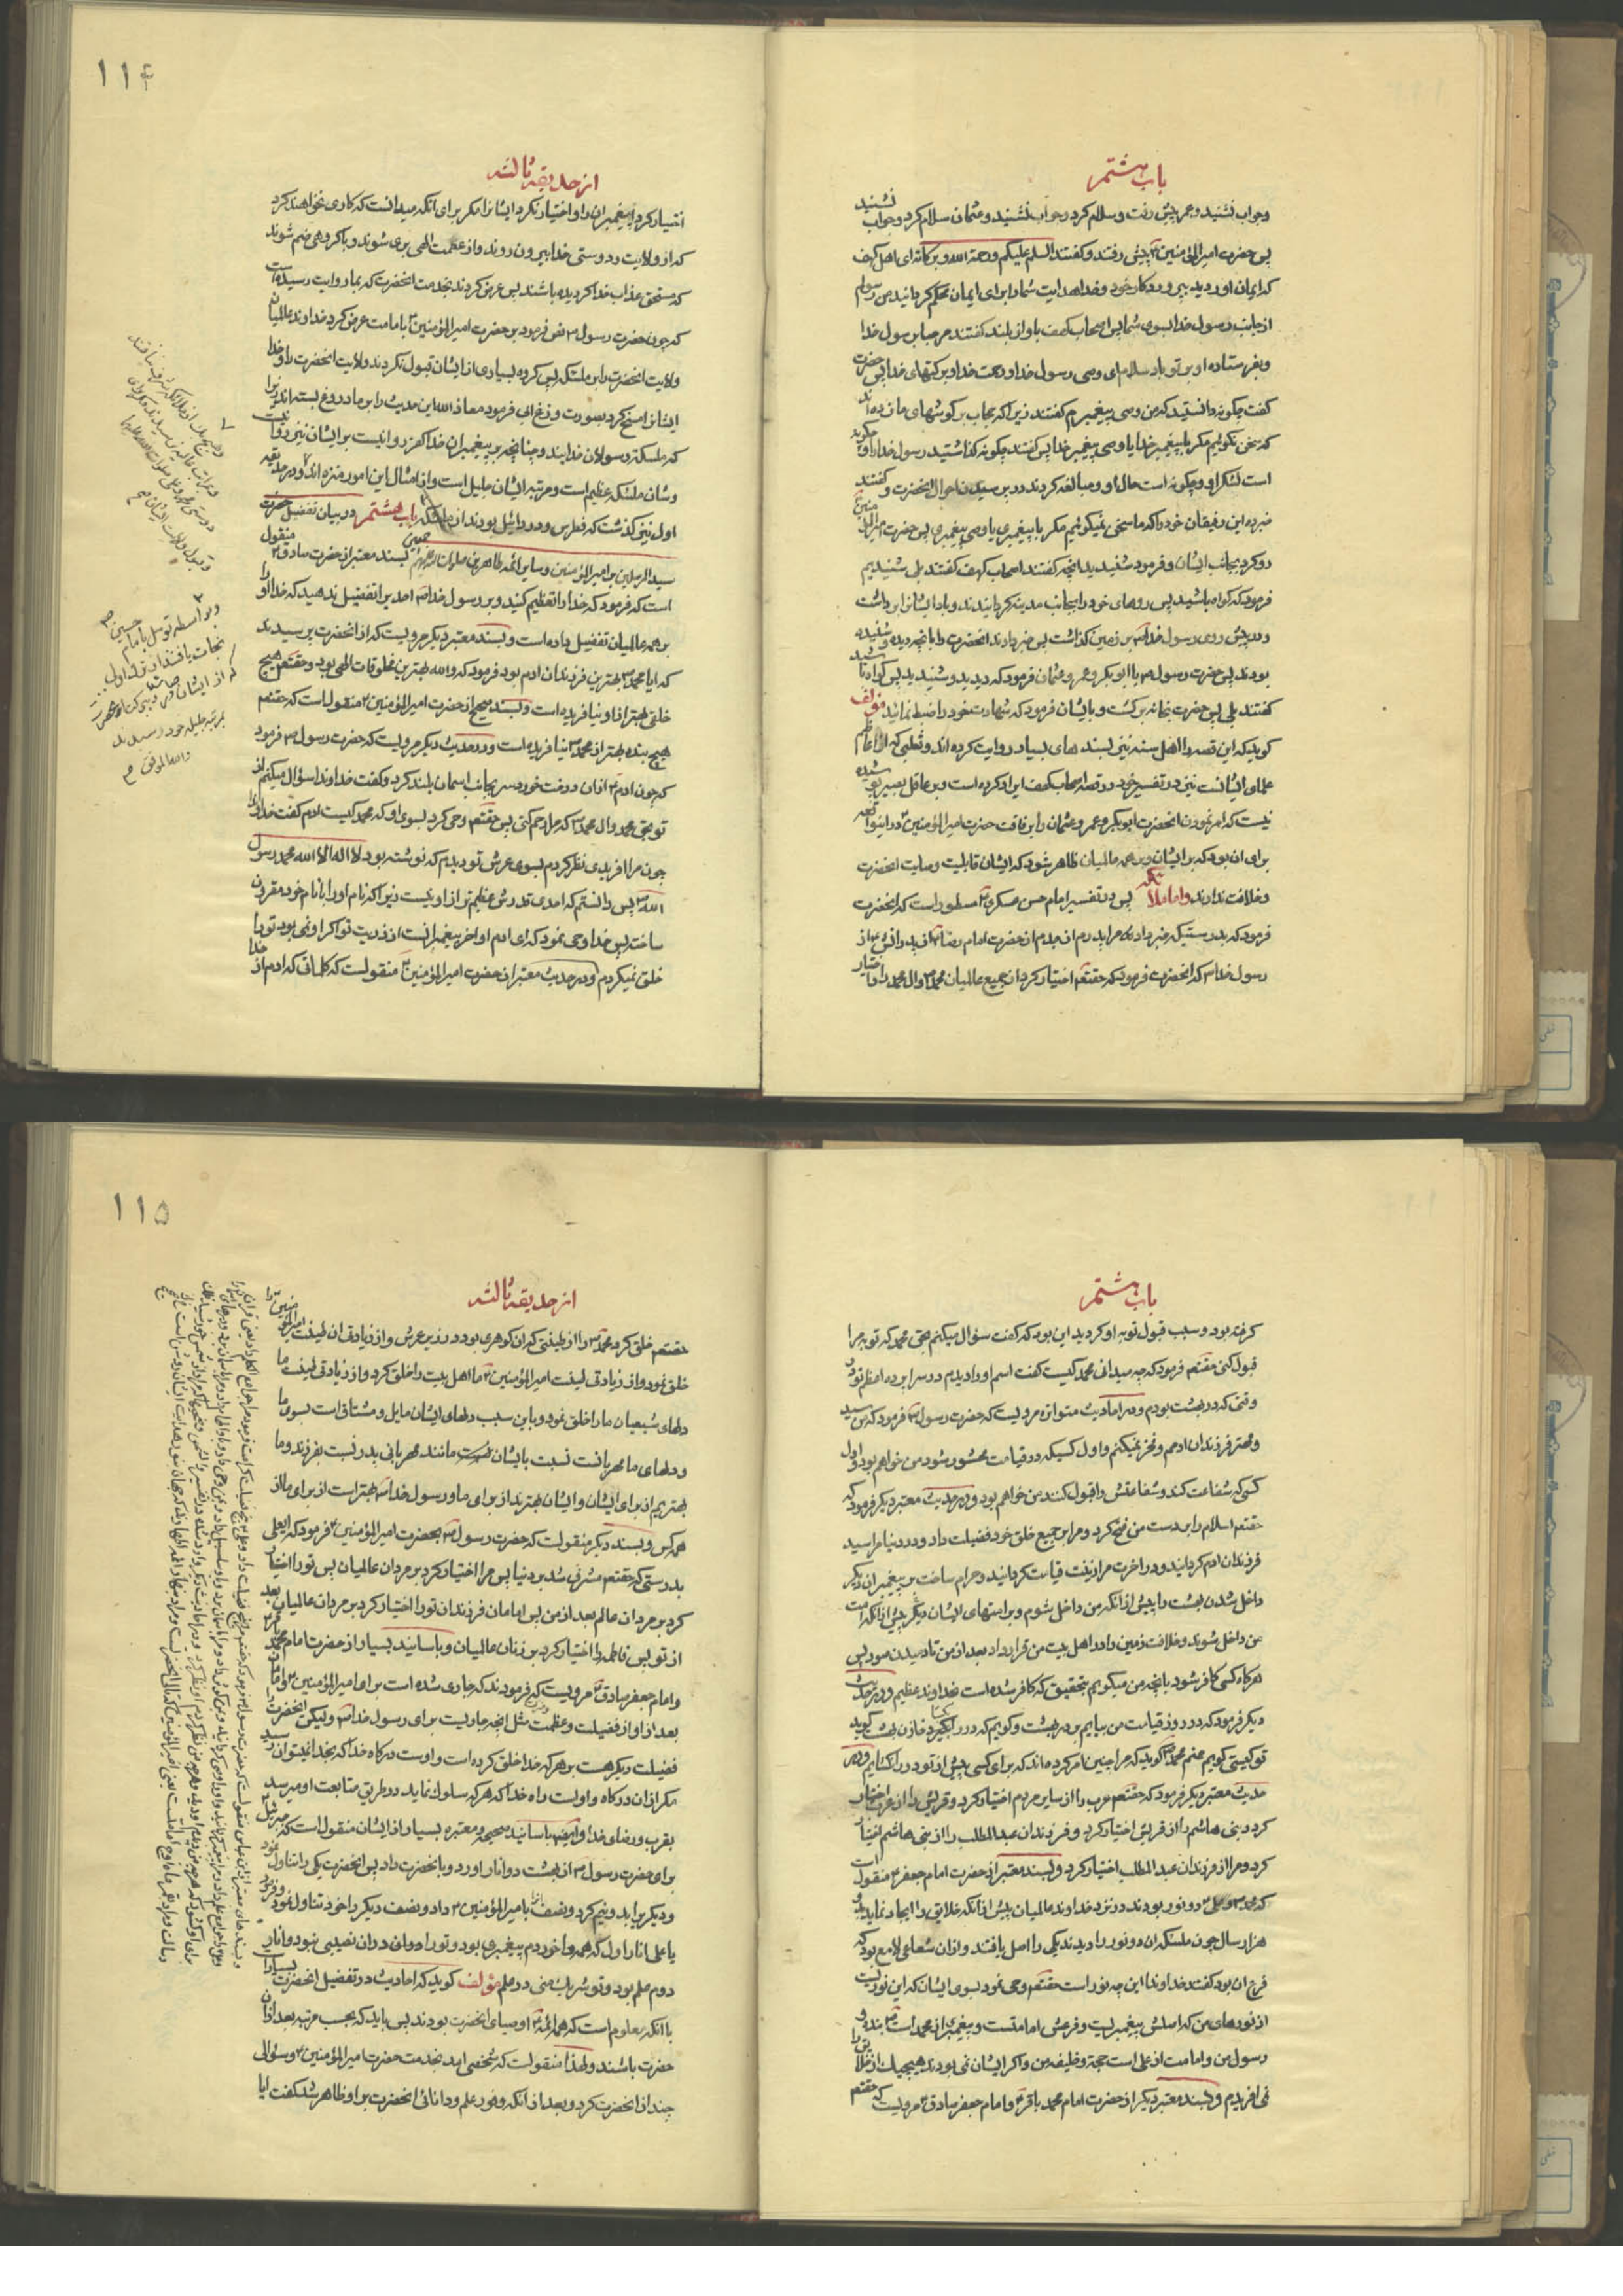 باب هشتم
وجواب نشنید وعمر پیش رفت وسلام کرد وجواب نشنید وعثمان سلام کرد وجواب نشنید
پس حضرت امیرالمؤمنین ع پیش رفتند وکفتند السلم علیکم ورحمة الله وبرکاته ای اهل کهف
که ایمان اوردید بپروردکار خود وخدا هدایت شما را برای ایمان محکم کردانید من رسولم
از جانب رسول خدا بسوی شما پس اصحاب کهف باواز بلند کفتند مرحبا برسول خدا
وبفرستاده او بر تو باد سلام ای وصی رسول خدا ورحمت خدا وبرکتهای خدا پس حضرت
کفت چکونه دانستید که من وصی پیغمبرم کفتند زیرا که حجاب بر کوشهای ما زده اند
که سخن نکوئیم مکر با پیغمبر خدا یا وصی پیغمبر خدا پس کفتند چکونه کذاشتید رسول خدا را وچکونه
است لشکر او وچکونه است حال او ومبالغه کردند در پرسیدن احوال انحضرت وکفتند
خبر ده این رفیقان خود را که ما سخن نمیکوئیم مکر با پیغمبری یا وصی پیغمبری پس حضرت امیرالمؤمنین ع
رو کرد بجانب ایشان وفرمود شنیدید انچه کفتند اصحاب کهف کفتند بلی شنیدیم
فرمود که کواه باشید پس روهای خود را بجانب مدینه کردانیدند وباد ایشانرا برداشت
ودر پیش روی رسول خدا ص بر زمین کذاشت پس خبر دادند انحضرت را بانچه دیده وشنیده
بودند پس حضرت رسول ص با ابوبکر وعمر وعثمان فرمود که دیدید وشنیدید پس کواه باشید
کفتند بلی پس حضرت بخانه برکشت وبایشان فرمود که شهادت خود را ضبط نمائید مؤلف
کوید که این قصه را اهل سنه نیز بسندهای بسیار روایت کرده اند وثعلبی که از اعاظم
علمای ایشانست نیز در تفسیر خود در قصه اصحاب کهف ایراد کرده است وبر عاقل بصیر پوشیده
نیست که امر نمودن انحضرت ابوبکر وعمر وعثمان را برفاقت حضرت امیرالمؤمنین ع در اینواقعه
برای ان بود که بر ایشان وبر همه عالمیان ظاهر شود که ایشان قابلیت وصایت انحضرت
وخلافت ندارند واما ملائکه پس در تفسیر امام حسن عسکری ع مسطور است که انحضرت
فرمود که بدرستیکه خبر داد مرا پدرم از جدم از حضرت امام رضا ع از پدرانش ع از
رسول خدا ص که انحضرت فرمود که حقتعم اختیار کرد از جمیع عالمیان محمد ص وال محمد را واختیار
۱۱۴
از حدیقه ثالثه
اختیار کرد پیغمبران را واختیار نکرد ایشانرا مکر برای انکه میدانست که کاری نخواهند کرد
که از ولایت ودوستی خدا بیرون روند واز عظمت الهی بری شوند وبا کروهی ضم شوند
که مستحق عذاب خدا کردیده باشند پس عرض کردند بخدمت انحضرت که بما روایت رسیده است
که چون حضرت رسول ص نص فرمود بر حضرت امیرالمؤمنین ع بامامت عرض کرد خداوند عالمیان
ولایت انحضرت را بر ملئکه پس کروه بسیاری از ایشان قبول نکردند ولایت انحضرت را وخدا
ایشانرا مسخ کرد بصورت وزغ ابی فرمود معاذ الله این حدیث را بر ما دروغ بسته اند زیرا
که ملئکه رسولان خدایند وچنانچه بر پیغمبران خدا کفر روا نیست بر ایشان نیز روا نیست
وشان ملئکه عظیم است ومرتبه ایشان جلیل است واز امثال این امور منزه اند ودر حدیقه
اول نیز کذشت که فطرس ودردائیل بودند از ملئکه باب هشتم در بیان تفضیل حضرت
سید المرسلین بر امیرالمؤمنین وسایر ائمه طاهرین صلوات الله علیهم اجمعین بسند معتبر از حضرت صادق ع منقول
است که فرمود که خدا را تعظیم کنید وبر رسول خدا ص احد یرا تفضیل ندهید که خدا او را
بر همه عالمیان تفضیل داده است وبسند معتبر دیکر مرویست که از انحضرت پرسیدند
که ایا محمد ص بهترین فرزندان ادم بود فرمود که والله بهترین مخلوقات الهی بود وحقتعم هیچ
خلقی بهتر از او نیافریده است وبسند صحیح از حضرت امیرالمؤمنین ع منقول است که حقتعم
هیچ بنده بهتر از محمد ص نیافریده است ودر حدیث دیکر مرویست که حضرت رسول ص فرمود
که چون ادم ع از ان درخت خورد سر بجانب اسمان بلند کرد وکفت خداوندا سؤال میکنم از
تو بحق محمد وال محمد ص که مرا رحم کنی پس حقتعم وحی کرد بسوی او که محمد کیست ادم کفت خداوندا
چون مرا افریدی نظر کردم بسوی عرش تو دیدم که نوشته بود لا اله الا الله محمد رسول
الله ص پس دانستم که احدی قدرش عظیم تر از او نیست زیرا که نام او را با نام خود مقرون
ساختی پس خدا وحی نمود که ای ادم او اخر پیغمبرانست از ذریت تو اکر او نمی بود تو را
خلق نمیکردم ودر حدیث معتبر از حضرت امیرالمؤمنین ع منقولست که کلماتی که ادم از خدا
وبواسطه توسل بامام حسین ص
نجات یافتند از
بمرتبه جلیله خود رسیدند
والله الموفق م
باب هشتم
کرفته بود وسبب قبول توبه او کردید این بود که کفت سؤال میکنم بحق محمد که توبه مرا
قبول کنی حقتعم فرمود که چه میدانی محمد کیست کفت اسم او را دیدم در سرا پرده اعظم تو در
وقتی که در بهشت بودم ودر احادیث متواتره مرویست که حضرت رسول ص فرمود که من سید
وبهتر فرزندان ادمم وفخر نمیکنم واول کسیکه در قیامت محشور شود من خواهم بود واول
کسی که شفاعت کند وشفاعتش را قبول کنند من خواهم بود ودر حدیث معتبر دیکر فرمود که
حقتعم اسلام را بر دست من فتح کرد ومرا بر جمیع خلق خود فضیلت داد ودر دنیا مرا سید
فرزندان ادم کردانید ودر اخرت مرا زینت قیامت کردانید وحرام ساخت بر پیغمبران دیکر
داخل شدن بهشت را پیش از انکه من داخل شوم وبر امتهای ایشان دیکر پیش از انکه امت
من داخل شوند وخلافت زمین را در اهل بیت من قرار داد بعد از من تا دمیدن صور پس
هرکاه کسی کافر شود بانچه من میکویم بتحقیق که کافر شده است بخداوند عظیم ودر حدیث
دیکر فرمود که در روز قیامت من بیایم بر در بهشت وکویم که در را بکشا خازن بهشت کوید
تو کیستی کویم منم محمد ص کوید که مرا چنین امر کرده اند که برای کسی پیش از تو در را نکشایم ودر
حدیث معتبر دیکر فرمود که حقتعم عرب را از سایر مردم اختیار کرد وقریش را از عرب اختیار
کرد وبنی هاشم را از قریش اختیار کرد وفرزندان عبدالمطلب را از بنی هاشم اختیار
کرد ومرا از فرزندان عبدالمطلب اختیار کرد وبسند معتبر از حضرت امام جعفر ع منقول است
که محمد ص وعلی ع دو نور بودند در نزد خداوند عالمیان پیش از انکه خلایق را ایجاد نماید بدو
هزار سال چون ملئکه ان دو نور را دیدند یکی را اصل یافتند واز ان شعاعی لامع بود که
فرع ان بود کفتند خداوندا این چه نور است حقتعم وحی نمود بسوی ایشان که این نوریست
از نورهای من که اصلش پیغمبریست وفرعش امامتست وپیغمبری از محمد است ص بنده و
رسول من وامامت از علی است حجة وخلیفه من واکر ایشان نمی بودند هیچیک از خلایق را
نمی افریدم وبسند معتبر دیکر از حضرت امام محمد باقر ع وامام جعفر صادق ع مرویست که حقتعم
۱۱۵
از حدیقه ثالثه
حقتعم خلق کرد محمد ص را از طینتی که ان کوهری بود در زیر عرش واز زیادتی ان طینت امیرالمؤمنین ع را
خلق نمود واز زیادتی طینت امیرالمؤمنین ع ما اهل بیت را خلق کرد واز زیادتی طینت ما
دلهای شیعیان ما را خلق نمود وباین سبب دلهای ایشان مایل ومشتاق است بسوی ما
ودلهای ما مهربانست نسبت بایشان مانند مهربانی پدر نسبت بفرزند وما
بهتریم از برای ایشان وایشان بهترند از برای ما ورسول خدا ص بهتر است از برای ما از
همه کس وبسند دیکر منقولست که حضرت رسول ص بحضرت امیرالمؤمنین ع فرمود که ایعلی
بدرستی که حقتعم مشرف شد بر دنیا پس مرا اختیار کرد بر مردان عالمیان پس تو را اختیار
کرد بر مردان عالم بعد از من پس امامان فرزندان تو را اختیار کرد بر مردان عالمیان بعد
از تو پس فاطمه را اختیار کرد بر زنان عالمیان وباسانید بسیار از حضرت امام محمد باقر ع
وامام جعفر صادق ع مرویست که فرمودند که جاری شده است برای امیرالمؤمنین ع وامامان
بعد از او از فضیلت وعظمت مثل انچه جاریست برای رسول خدا ص ولیکن انحضرت را
فضیلت دیکر هست بر هر که خدا خلق کرده است واوست درکاه خدا که بخدا نمیتوان رسید
مکر از ان درکاه واوست راه خدا که هر که سلوک نماید در طریق متابعت او میرسد
بقرب ورضای خدا وایضا باسانید صحیحه ومعتبره بسیار از ایشان منقول است که جبرئیل
برای حضرت رسول ص از بهشت دو انار اورد وبانحضرت داد پس انحضرت یکی را تناول نمود
ودیکر یرا بدو نیم کرد ونصف انرا بامیرالمؤمنین ع داد ونصف دیکر را خود تناول نمود وفرمود
یا علی انار اول که همه را خوردم پیغمبری بود وتو را در ان نصیبی نبود وانار
دوم علم بود وتو شریک منی در علم مؤلف کوید که احادیث در تفضیل انحضرت بسیار است
با انکه معلوم است که همه ائمه ع اوصیای انحضرت بودند پس باید که بحسب مرتبه بعد از ان
حضرت باشند ولهذا منقولست که شخصی امد بخدمت حضرت امیرالمؤمنین ع وسؤالی
چند از انحضرت کرد وبعد از انکه وفور علم ودانائی انحضرت بر او ظاهر شد کفت ایا